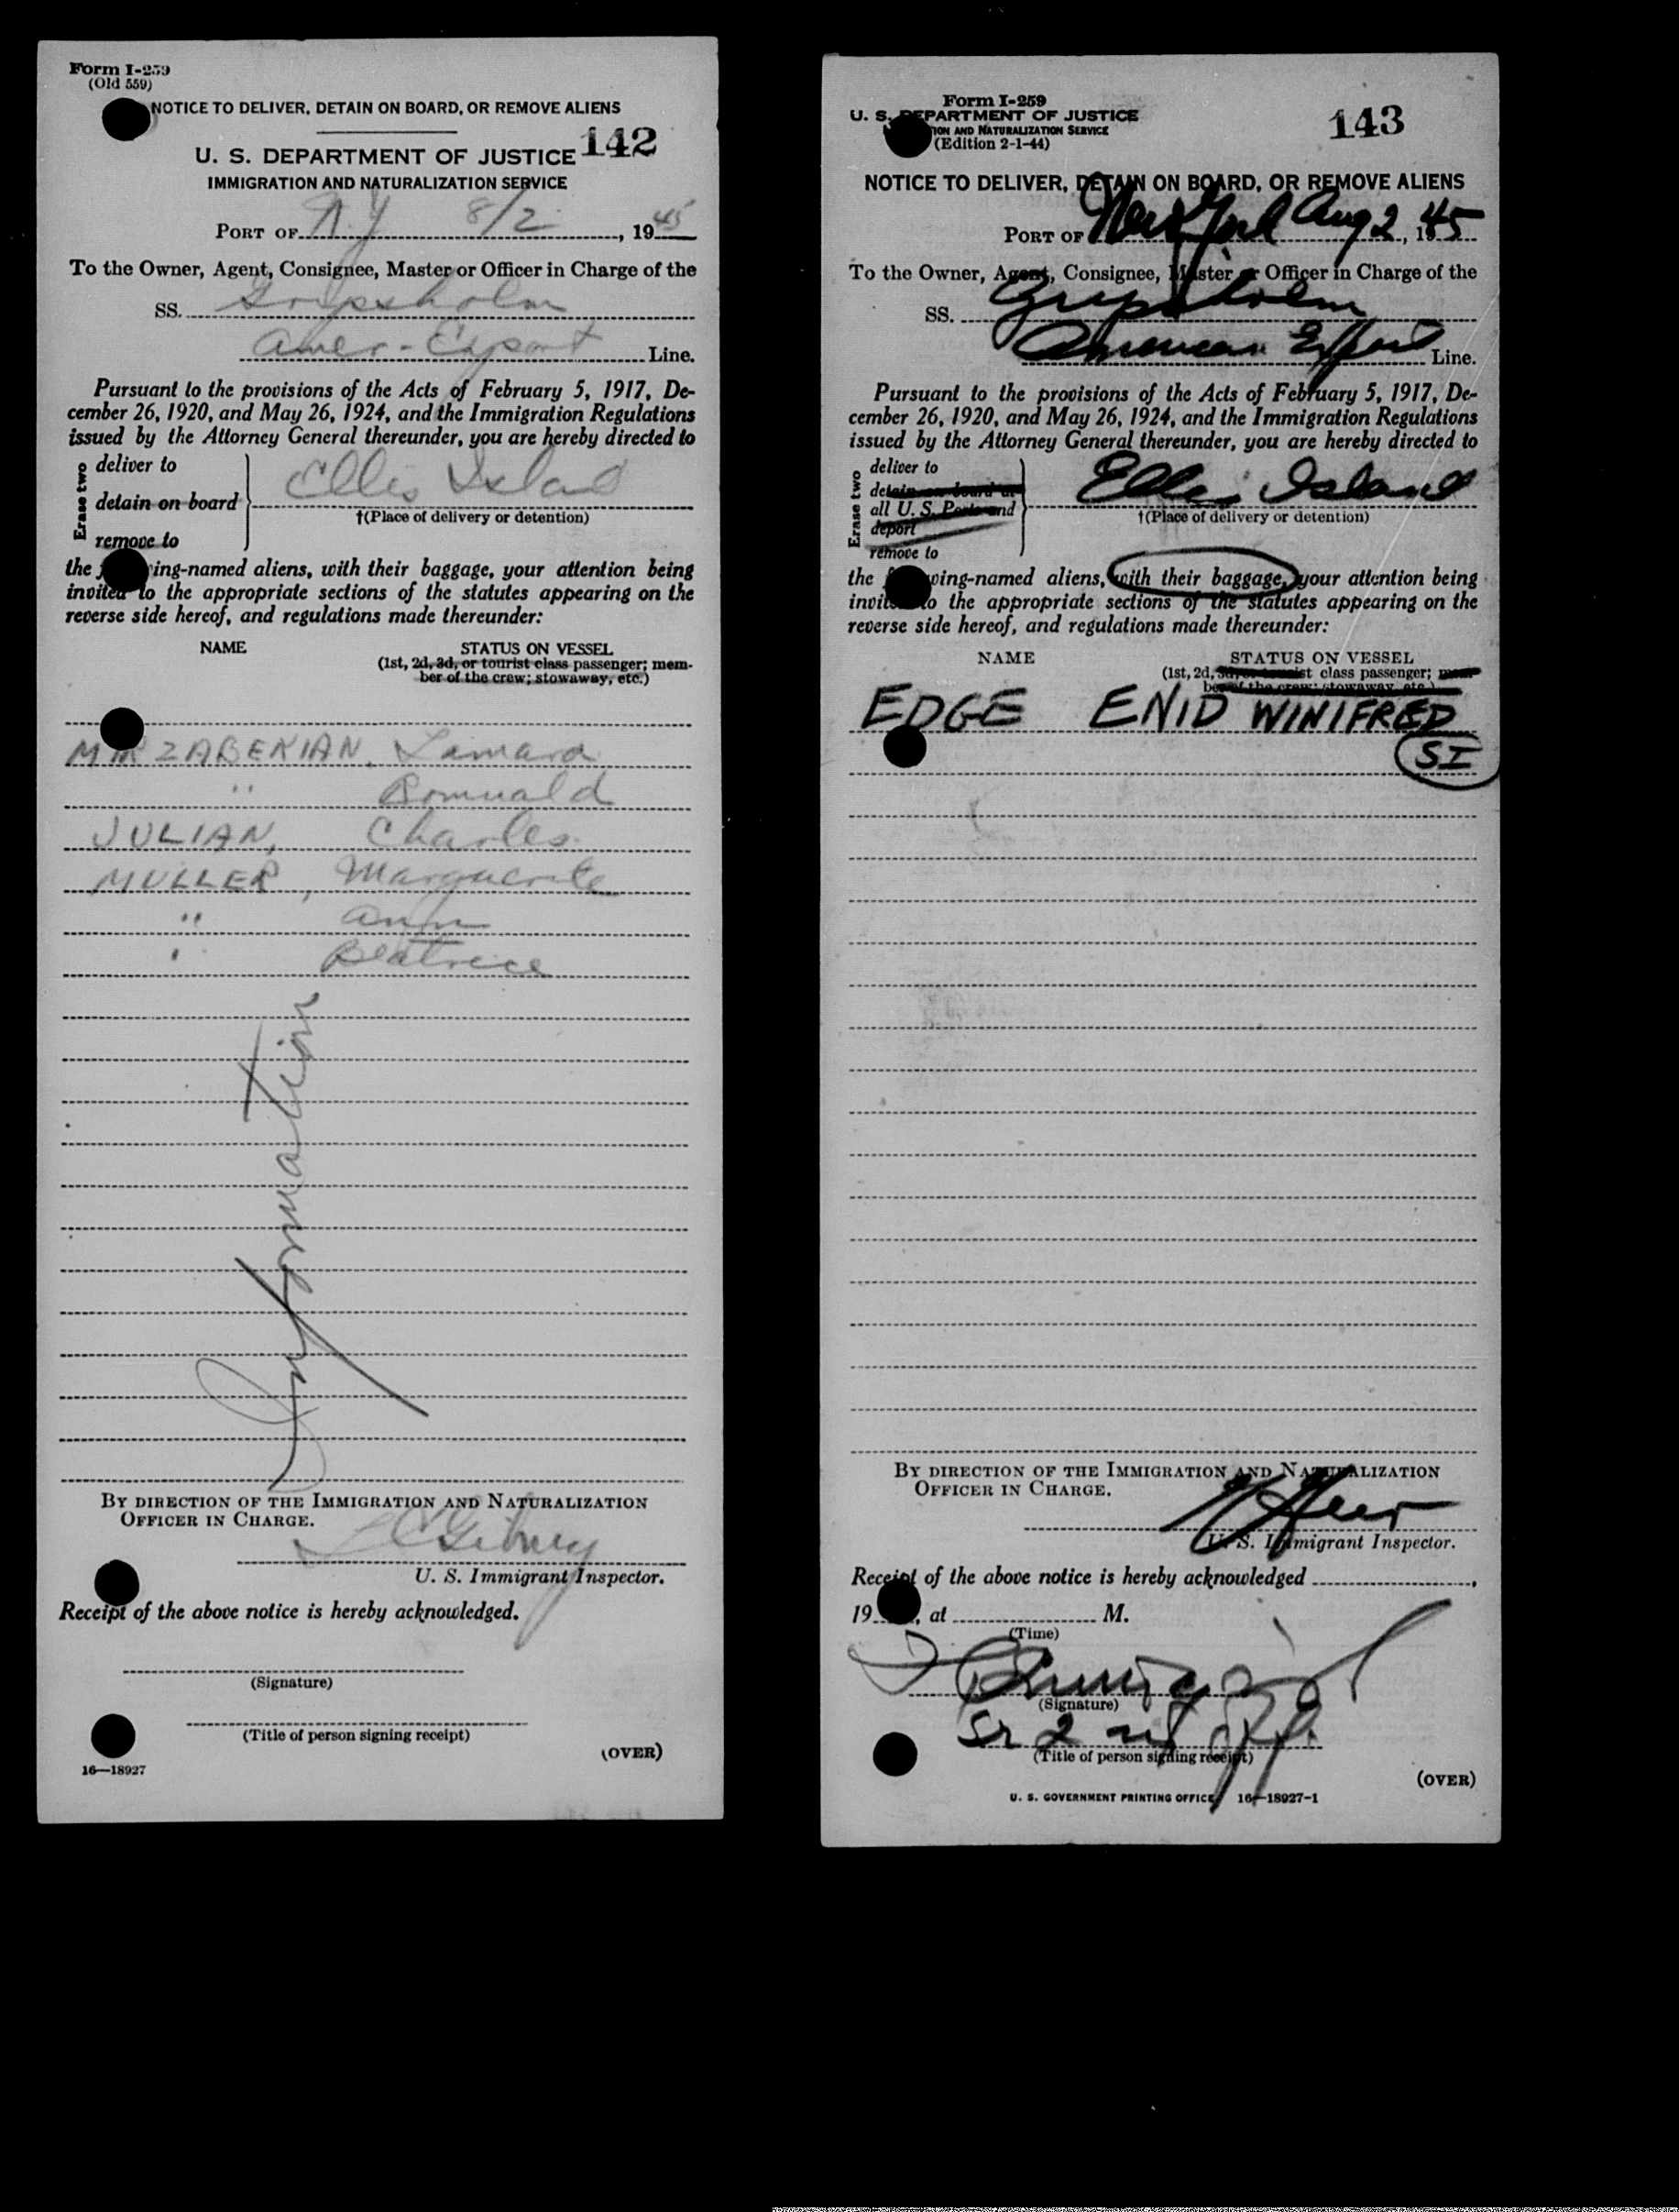 Form I-259
(Old 559)
NOTICE TO DELIVER, DETAIN ON BOARD, OR REMOVE ALIENS
142
U. S. DEPARTMENT OF JUSTICE
IMMIGRATION AND NATURALIZATION SERVICE
PORT OF N.Y 8/2, 1945
To the Owner, Agent, Consignee, Master or Officer in Charge of the
SS. Gripsholm
Amer-Export Line.
Pursuant to the provisions of the Acts of February 5, 1917, De-
cember 26, 1920, and May 26, 1924, and the Immigration Regulations
issued by the Attorney General thereunder, you are hereby directed to
Erase two
deliver to
detain on board
remove to
Ellis Island
†(Place of delivery or detention)
the ing-named aliens, with their baggage, your attention being
invited to the appropriate sections of the statutes appearing on the
reverse side hereof, and regulations made thereunder:
NAME STATUS ON VESSEL
(1st, 2d, 3d, or tourist class passenger; mem-
ber of the crew; stowaway, etc.)
MIRZABEKIAN, Tamara
" Romuald
JULIAN, Charles
MULLER, Marguerite
" Ann
" Beatrice
Information
BY DIRECTION OF THE IMMIGRATION AND NATURALIZATION
OFFICER IN CHARGE.
Gibney
U. S. Immigrant Inspector.
Receipt of the above notice is hereby acknowledged.
(Signature)
(Title of person signing receipt)
(OVER)
16—18927
Form I-259
U. S. DEPARTMENT OF JUSTICE
ION AND NATURALIZATION SERVICE
(Edition 2-1-44)
143
NOTICE TO DELIVER, DETAIN ON BOARD, OR REMOVE ALIENS
PORT OF New York Aug 2, 1945
To the Owner, Agent, Consignee, Master or Officer in Charge of the
SS. Gripsholm
American Export Line.
Pursuant to the provisions of the Acts of February 5, 1917, De-
cember 26, 1920, and May 26, 1924, and the Immigration Regulations
issued by the Attorney General thereunder, you are hereby directed to
Erase two
deliver to
detain on board at
all U. S. Ports and
deport
remove to
Ellis Island
†(Place of delivery or detention)
the wing-named aliens, with their baggage, your attention being
invited to the appropriate sections of the statutes appearing on the
reverse side hereof, and regulations made thereunder:
NAME STATUS ON VESSEL
(1st, 2d, 3d, or tourist class passenger; mem-
ber of the crew; stowaway, etc.)
EDGE ENID WINIFRED
SI
BY DIRECTION OF THE IMMIGRATION AND NATURALIZATION
OFFICER IN CHARGE.
U. S. Immigrant Inspector.
Receipt of the above notice is hereby acknowledged
19 , at M.
(Time)
(Signature)
Sr 2nd
(Title of person signing receipt)
(OVER)
U. S. GOVERNMENT PRINTING OFFICE 16—18927-1